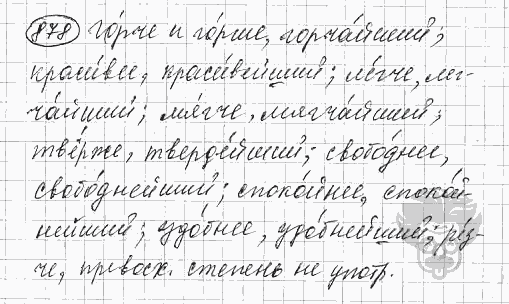 878 Го́рче и го́рше, горча́йший;
краси́вее, краси́вейший; ле́гче, лег-
ча́йший; мя́гче, мягча́йший;
твёрже, тверде́йший; свобо́днее,
свобо́днейший; споко́йнее, споко́й-
нейший; удо́бнее, удо́бнейший; ре́з-
че, превосх. степень не употр.